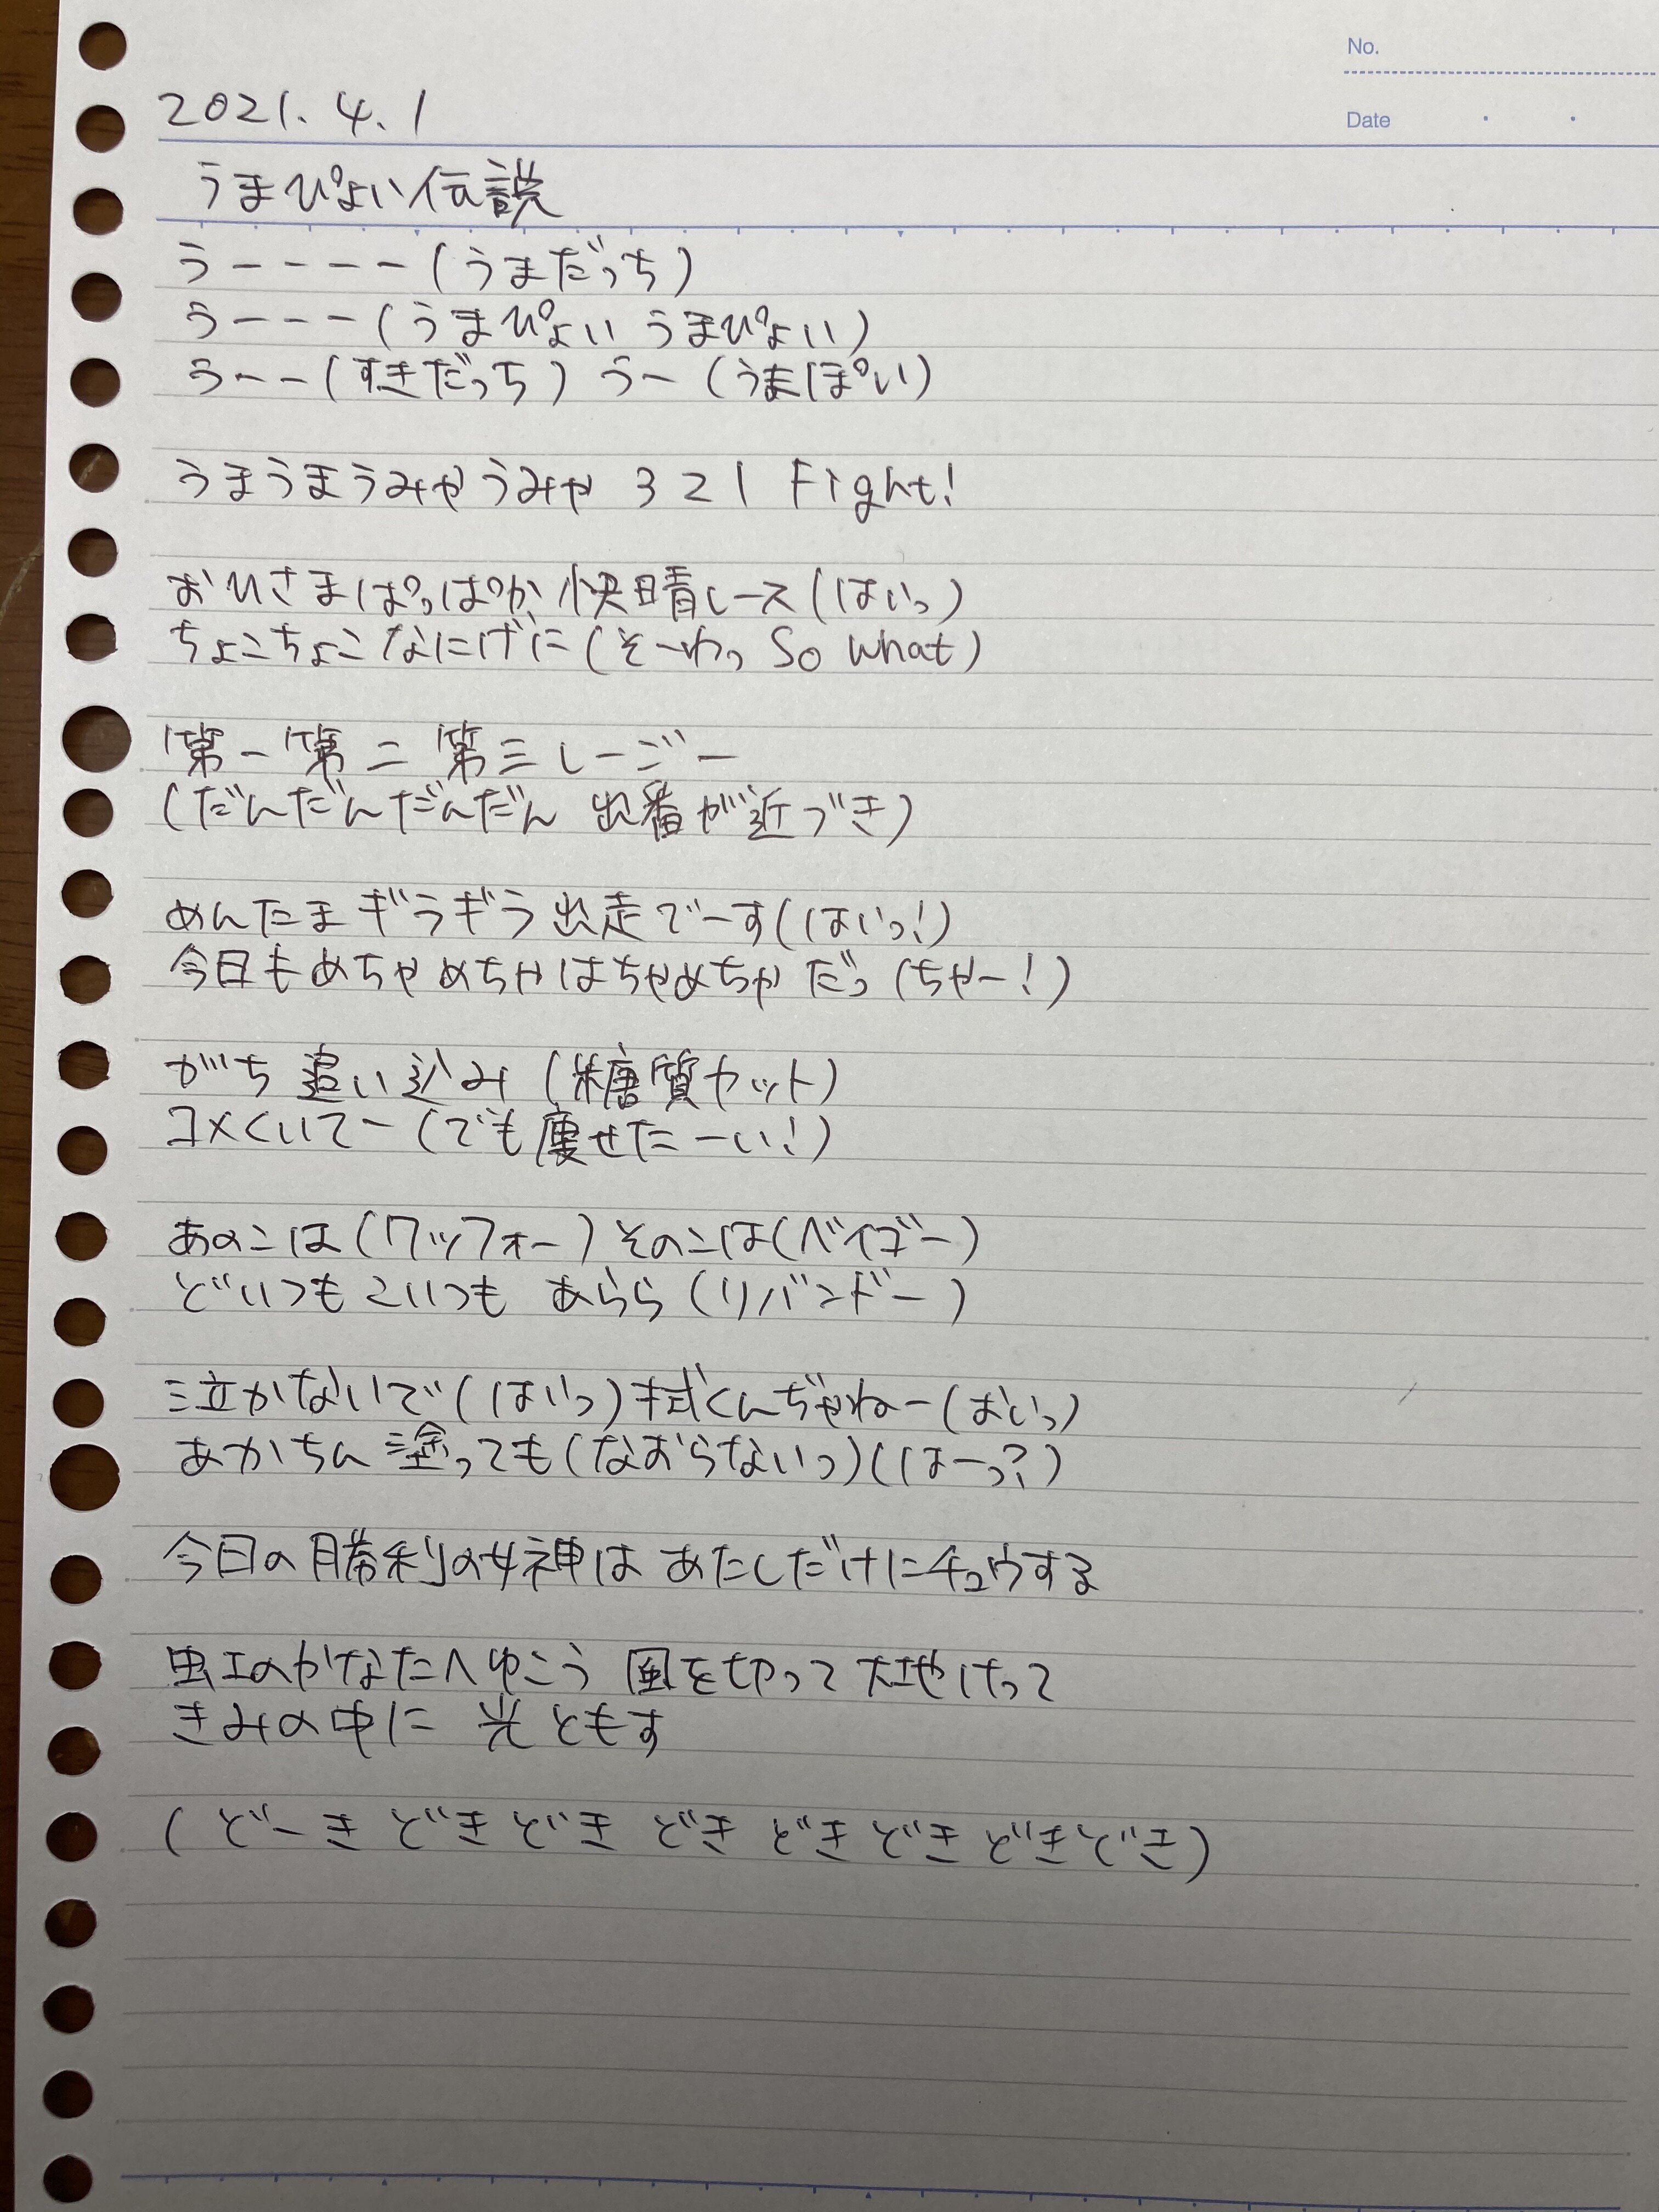 No.
Date
2021.4.1
うまぴょい伝説
うーーーー(うまだっち)
うーーー(うまぴょい うまぴょい)
うーー(すきだっち) うー(うまぽい)
うまうまうみゃうみゃ 321 Fight!
おひさまぱっぱか快晴レース(はいっ)
ちょこちょこなにげに(そーわっ So what)
第一第二第三しーごー
(だんだんだんだん 出番が近づき)
めんたまギラギラ出走でーす(はいっ!)
今日もめちゃめちゃはちゃめちゃだっ(ちゃー!)
がち追い込み(糖質カット)
コメくいてー(でも痩せたーい!)
あのこは(ワッフォー)そのこは(ベイゴー)
どいつもこいつも あらら(リバンドー)
泣かないで(はいっ)拭くんぢゃねー(おいっ)
あかちん塗っても(なおらないっ)(はーっ?)
今日の勝利の女神は あたしだけにチュウする
虹のかなたへゆこう 風を切って 大地けって
きみの中に 光ともす
(どーきどきどき どきどきどきどきどき)